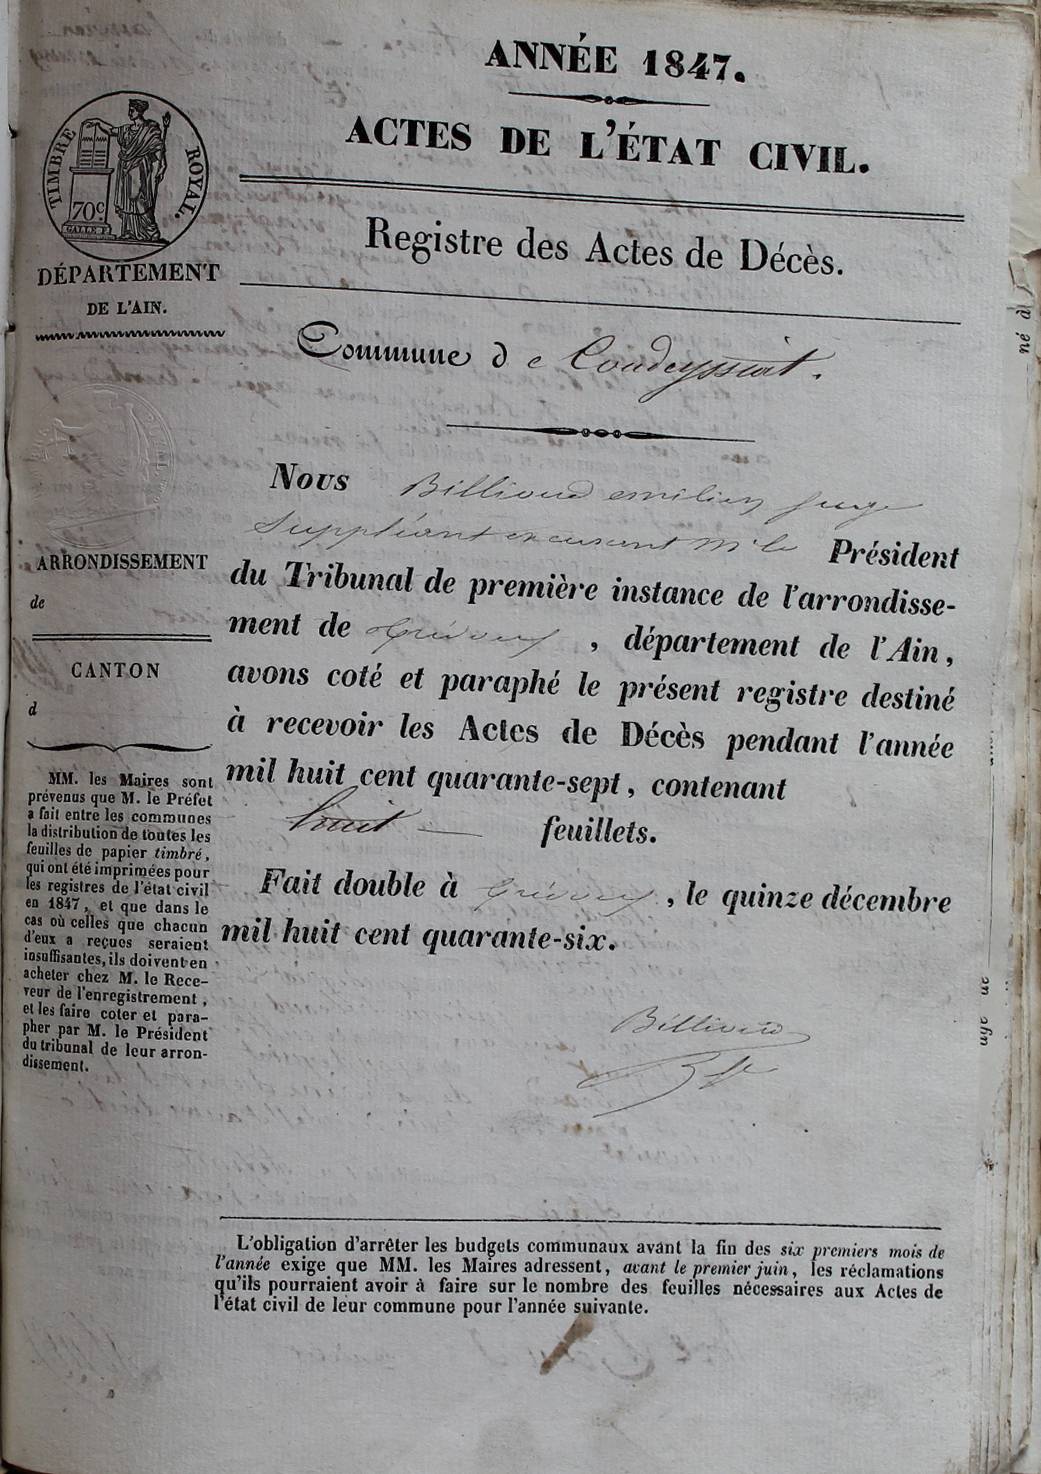 ANNÉE 1847.
ACTES DE L'ÉTAT CIVIL.
TIMBRE ROYAL.
70c
DÉPARTEMENT
DE L'AIN.
Registre des Actes de Décès.
Commune de Condeyssiat.
Nous Billioud emilien juge
Suppléant excusant Mr le Président
du Tribunal de première instance de l'arrondisse-
ment de Trévoux, département de l'Ain,
avons coté et paraphé le présent registre destiné
à recevoir les Actes de Décès pendant l'année
mil huit cent quarante-sept, contenant
huit — feuillets.
Fait double à Trévoux, le quinze décembre
mil huit cent quarante-six.
Billioud
ARRONDISSEMENT
de
CANTON
d
MM. les Maires sont
prévenus que M. le Préfet
a fait entre les communes
la distribution de toutes les
feuilles de papier timbré,
qui ont été imprimées pour
les registres de l'état civil
en 1847, et que dans le
cas où celles que chacun
d'eux a reçues seraient
insuffisantes, ils doivent en
acheter chez M. le Rece-
veur de l'enregistrement,
et les faire coter et para-
pher par M. le Président
du tribunal de leur arron-
dissement.
L'obligation d'arrêter les budgets communaux avant la fin des six premiers mois de
l'année exige que MM. les Maires adressent, avant le premier juin, les réclamations
qu'ils pourraient avoir à faire sur le nombre des feuilles nécessaires aux Actes de
l'état civil de leur commune pour l'année suivante.
né à